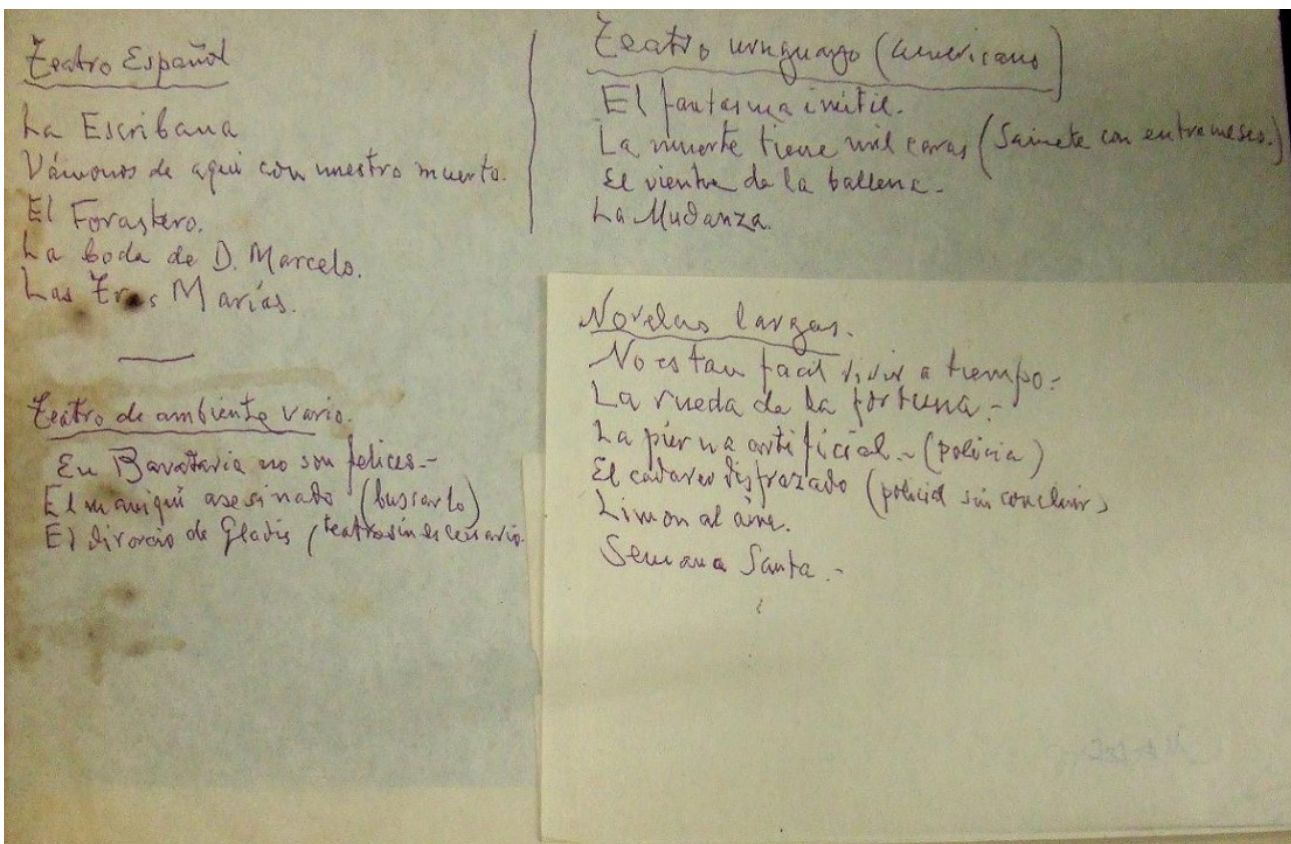 Teatro Español
La Escribana
Vámonos de aquí con nuestro muerto.
El Forastero.
La boda de D. Marcelo.
Las Tres Marías.
Teatro de ambiente vario.
En Barataria no son felices.-
El maniquí asesinado (buscarlo)
El divorcio de Gladis (teatro sin escenario.
Teatro uruguayo (americano)
El fantasma inútil.
La muerte tiene mil caras (Sainete con entremeses.)
El vientre de la ballena.-
La Mudanza.
Novelas largas.
No es tan facil vivir a tiempo.-
La rueda de la fortuna.-
La pierna artificial.- (policia)
El cadaver disfrazado (policial sin concluir)
Limon al aire.
Semana Santa.-